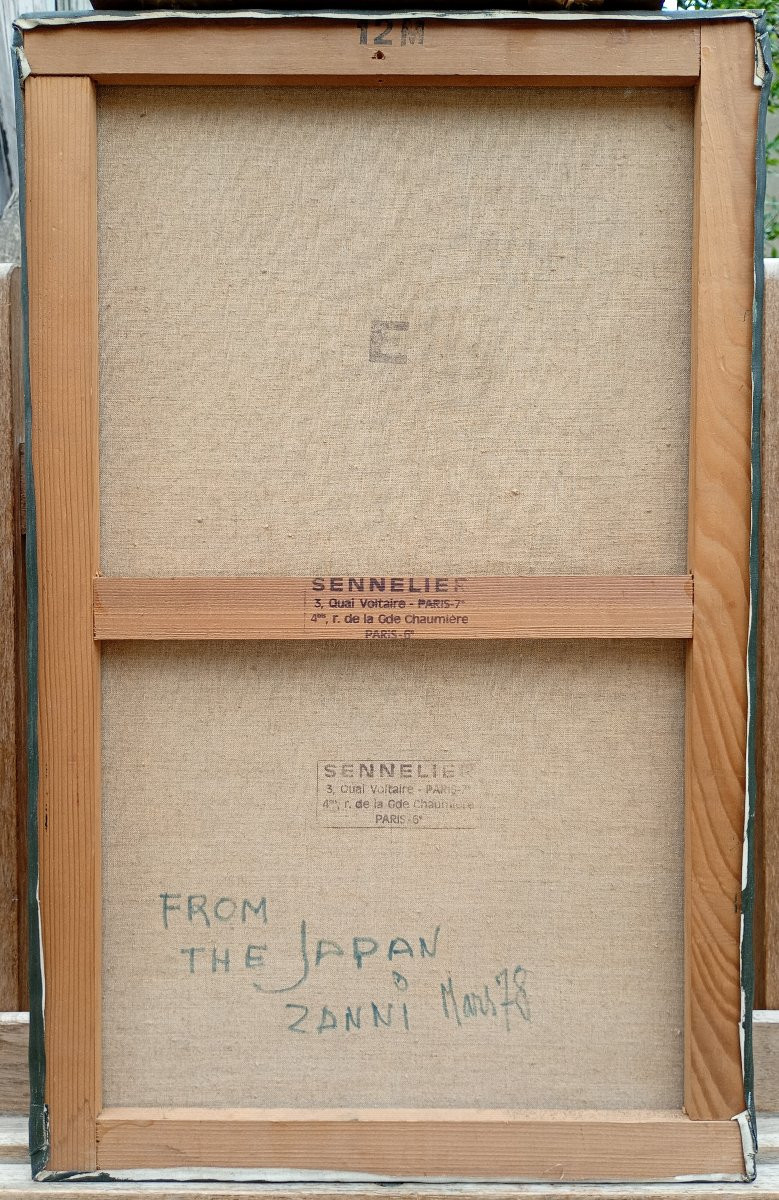 12M
E
SENNELIER
3, Quai Voltaire - PARIS-7e
4bis, r. de la Gde Chaumière
PARIS-6e
SENNELIER
3, Quai Voltaire - PARIS-7e
4bis, r. de la Gde Chaumière
PARIS-6e
FROM
THE JAPAN
ZANNI Mars 78